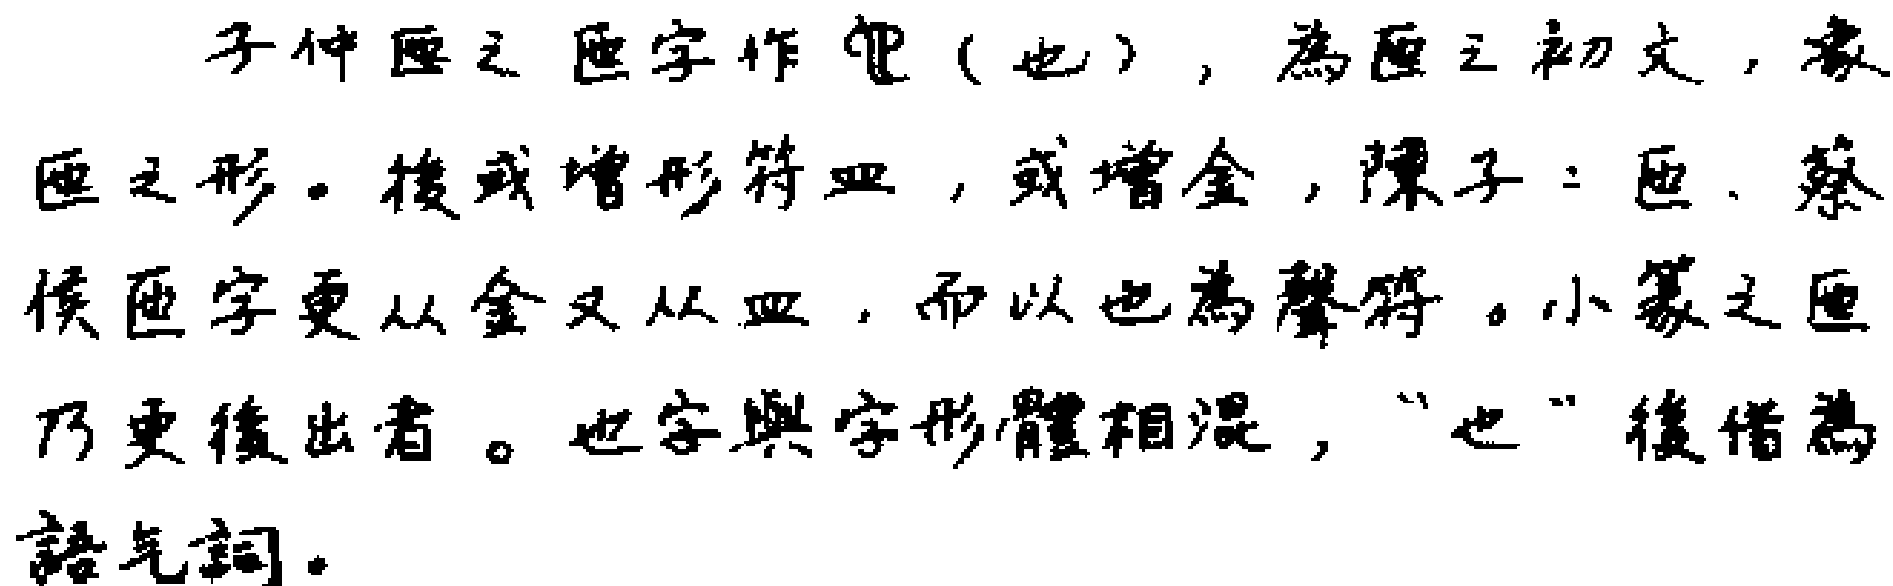 子仲匜之匜字作（也），為匜之初文，象
匜之形。後或增形符皿，或增金，陳子：匜、蔡
侯匜字更从金又从皿，而以也為聲符。小篆之匜
乃更後出者。也字與字形體相混，“也”後借為
語气詞。